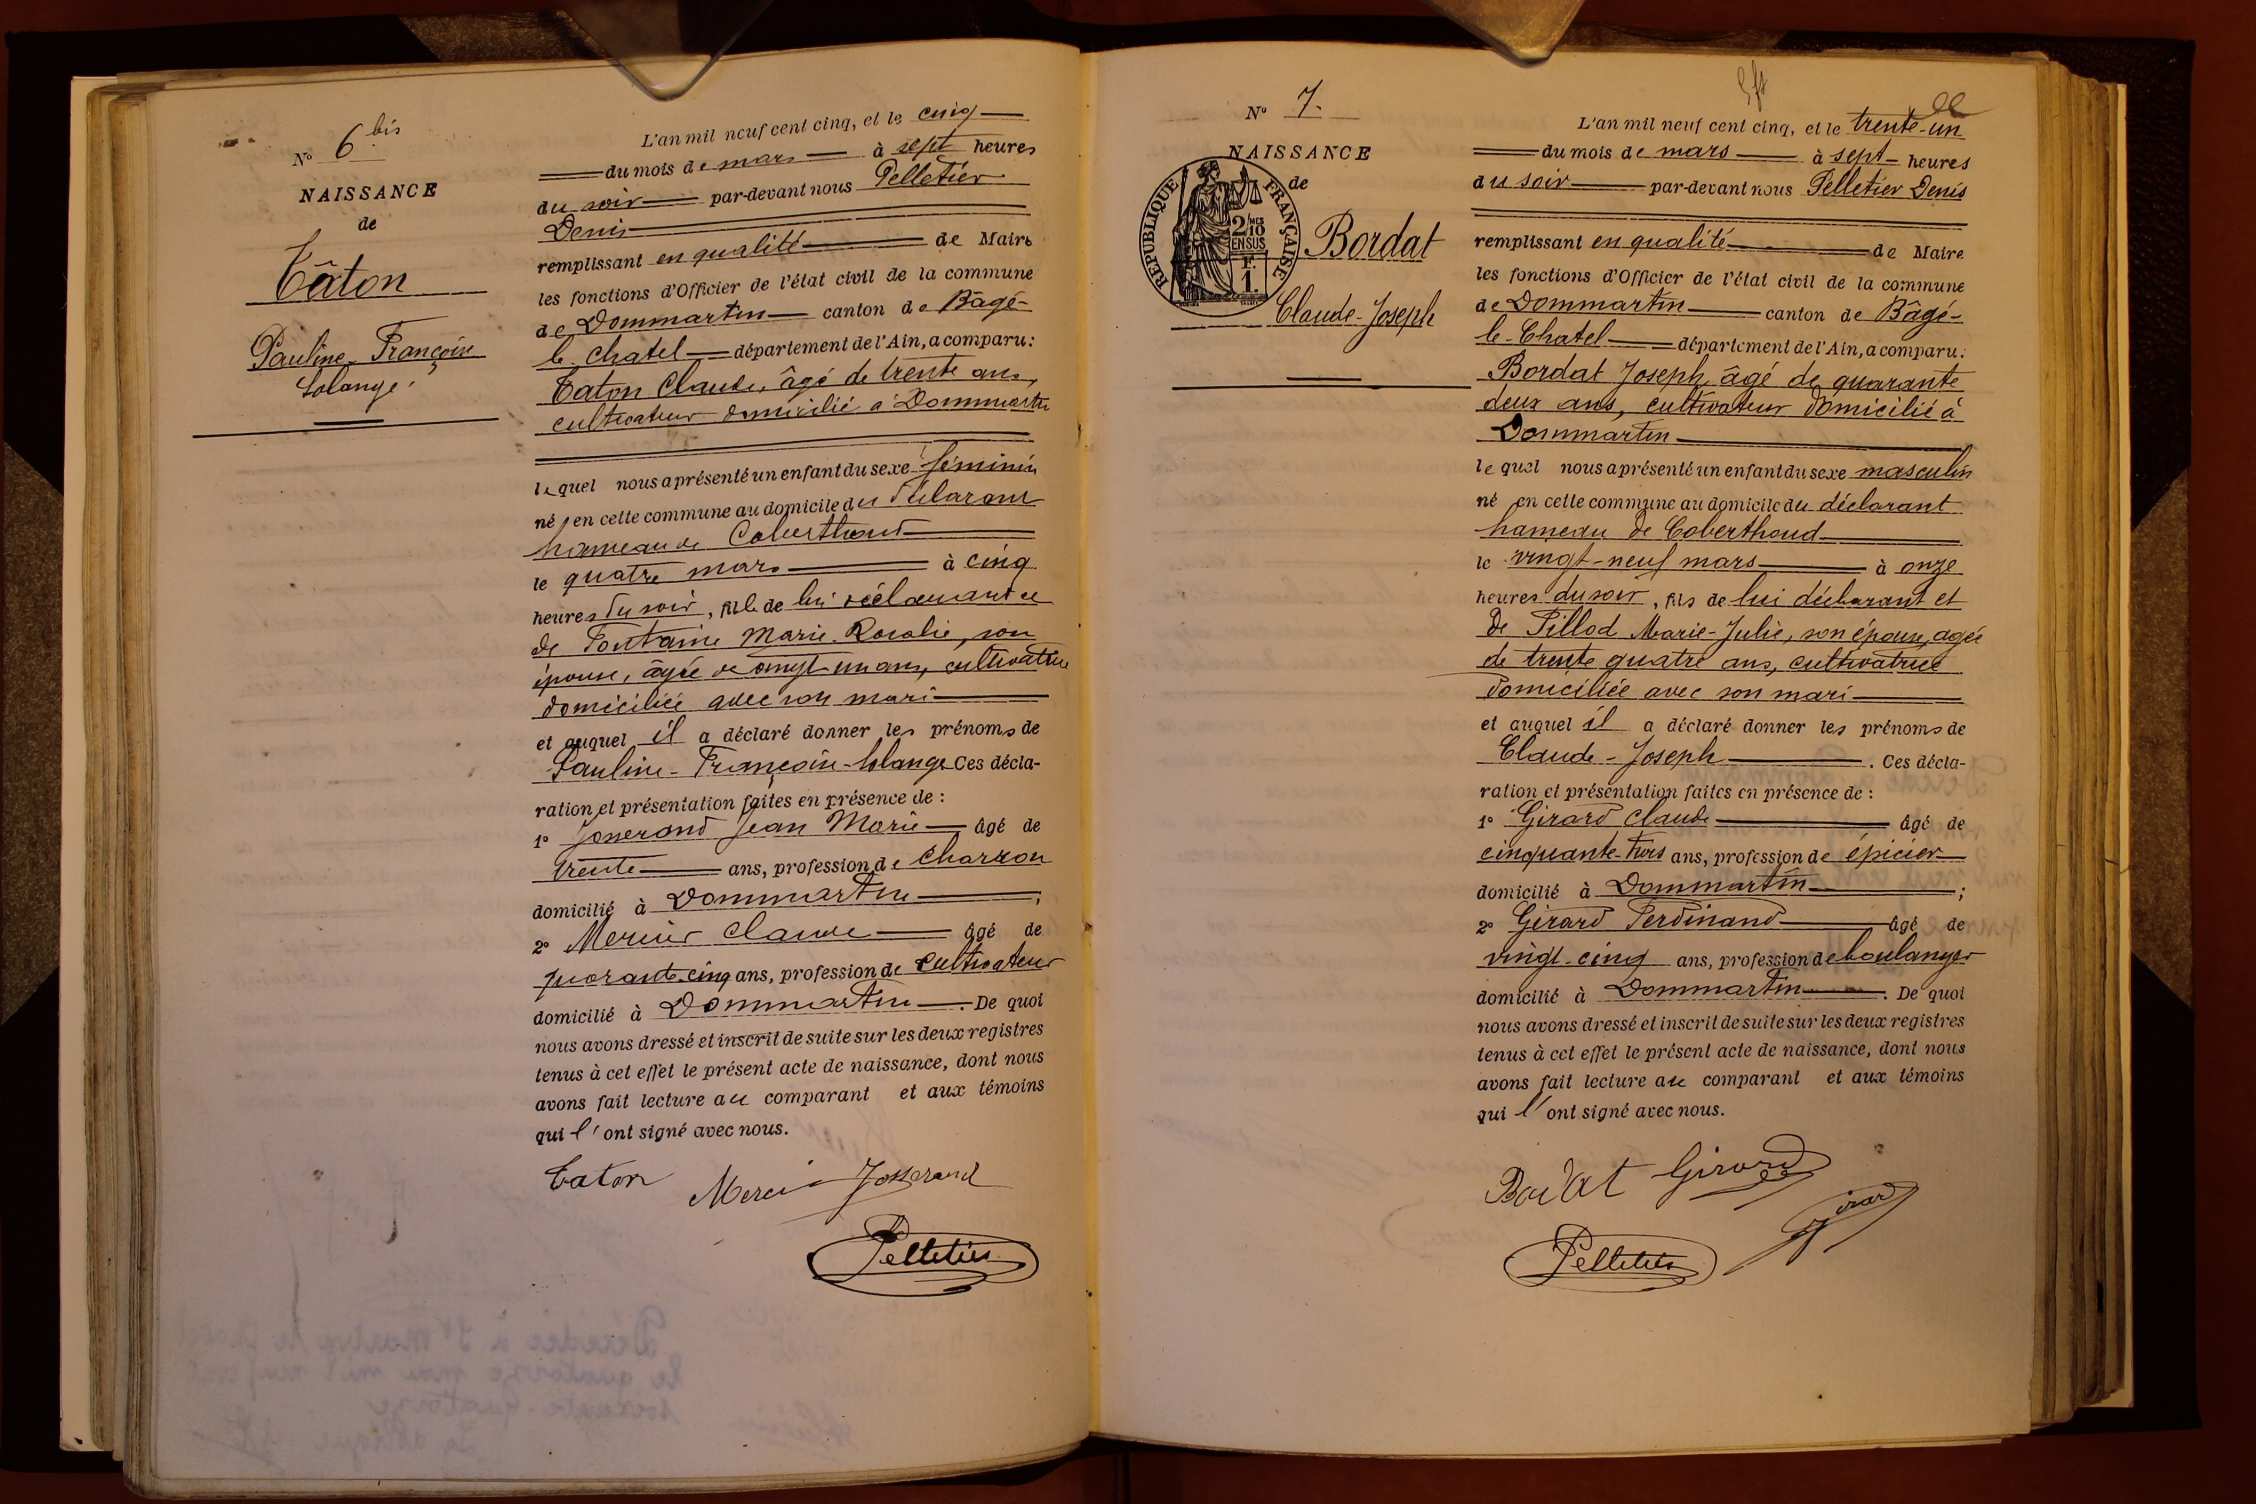 N° 6 bis
NAISSANCE
de
Câton
Pauline-Françoise
Solange
L'an mil neuf cent cinq, et le cinq
du mois de mars à sept heures
du soir par-devant nous Pelletier
Denis
remplissant en qualité de Maire
les fonctions d'Officier de l'état civil de la commune
de Dommartin canton de Bâgé-
le-Chatel département de l'Ain, a comparu:
Caton Claude, âgé de trente ans,
cultivateur domicilié à Dommartin
lequel nous a présenté un enfant du sexe féminin
né en cette commune au domicile du déclarant
hameau de Coberthoud
le quatre mars à cinq
heures du soir, fille de lui déclarant et
de Fontaine Marie-Rosalie, son
épouse, âgée de vingt un ans, cultivatrice
domiciliée avec son mari
et auquel il a déclaré donner les prénoms de
Pauline-Françoise-Solange Ces décla-
ration et présentation faites en présence de :
1° Josserand Jean Marie âgé de
trente ans, profession de charron
domicilié à Dommartin ;
2° Mercier Claude âgé de
quarante-cinq ans, profession de cultivateur
domicilié à Dommartin. De quoi
nous avons dressé et inscrit de suite sur les deux registres
tenus à cet effet le présent acte de naissance, dont nous
avons fait lecture au comparant et aux témoins
qui l'ont signé avec nous.
Caton Mercier Josserand
Pelletier
N° 7.
NAISSANCE
de
RÉPUBLIQUE FRANÇAISE
2/10 MES
EN SUS
F.
1.
Bordat
Claude-Joseph
L'an mil neuf cent cinq, et le trente-un
du mois de mars à sept heures
du soir par-devant nous Pelletier Denis
remplissant en qualité de Maire
les fonctions d'Officier de l'état civil de la commune
de Dommartin canton de Bâgé-
le-Chatel département de l'Ain, a comparu:
Bordat Joseph âgé de quarante
deux ans, cultivateur domicilié à
Dommartin
lequel nous a présenté un enfant du sexe masculin
né en cette commune au domicile du déclarant
hameau de Coberthoud
le vingt-neuf mars à onze
heures du soir, fils de lui déclarant et
de Pillod Marie-Julie, son épouse, agée
de trente quatre ans, cultivatrice
domiciliée avec son mari
et auquel il a déclaré donner les prénoms de
Claude-Joseph. Ces décla-
ration et présentation faites en présence de :
1° Girard Claude âgé de
cinquante-trois ans, profession de épicier
domicilié à Dommartin ;
2° Girard Ferdinand âgé de
vingt-cinq ans, profession de boulanger
domicilié à Dommartin. De quoi
nous avons dressé et inscrit de suite sur les deux registres
tenus à cet effet le présent acte de naissance, dont nous
avons fait lecture au comparant et aux témoins
qui l'ont signé avec nous.
Bordat Girard
Girard
Pelletier